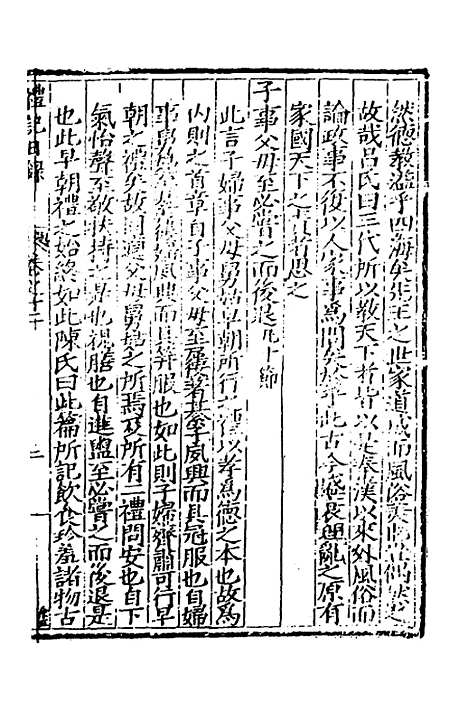 然德教溢乎四海矣先王之世家道成而風俗美豈偶然之
故哉呂氏曰三代所以教天下者皆以是秦漢以來外風俗而
論政事不復以人家事爲問矣於乎此古今盛衰理亂之原有
家國天下之責者思之
子事父母至必嘗之而後退凡十節
此言子婦事父母舅姑早朝所行之禮以孝爲德之本也故爲
内則之首章自子事父母至屨著綦夙興而具冠服也自婦
事舅姑至綦屨夙興而具笄服也如此則子婦齊肅可行早
朝之禮矣故因適父母舅姑之所焉及所有二禮問安也自下
氣怡聲至敬扶持之是也視膳也自進盥至必嘗之而後退是
也此早朝禮之始終如此陳氏曰此篇所記飲食珍羞諸物古
禮記日錄 卷之十二 三